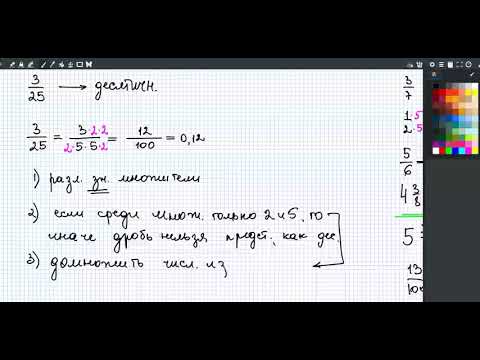 3/25 → десятичн.
3/25 = 3·2·2/2·5·5·2 = 12/100 = 0,12
1) разл. зн. множители
2) если среди множ. только 2 и 5, то
иначе дробь нельзя предст. как дес.
3) домножить числ. из
3/7
1·5/2·5
5/6
4 3/8
5
13